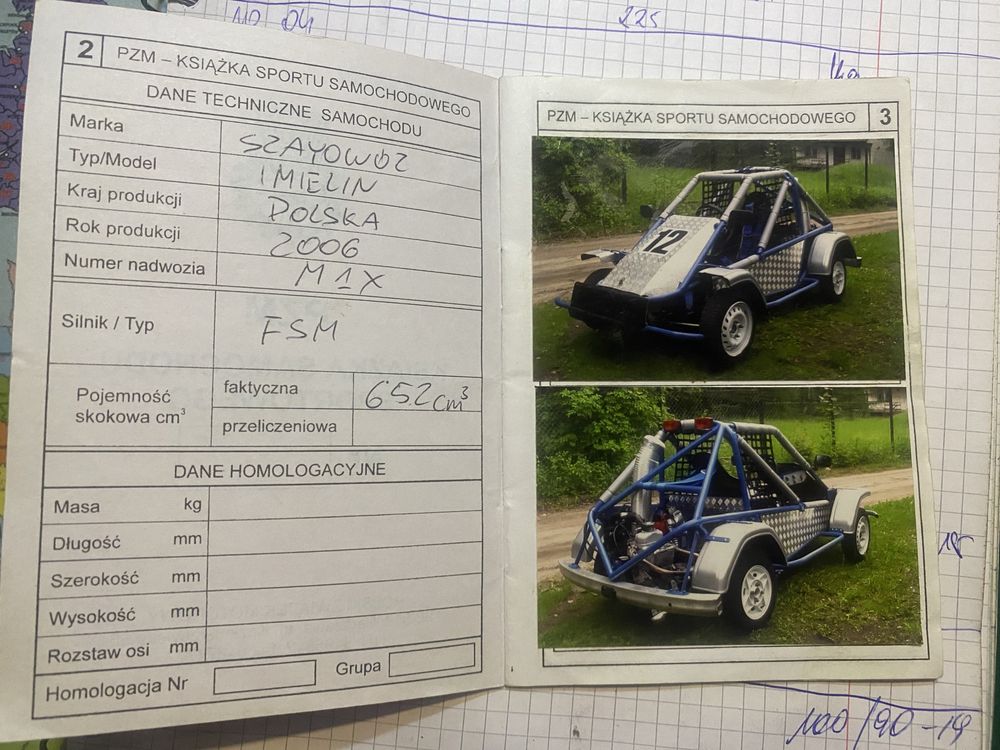 110 04
225
2 PZM – KSIĄŻKA SPORTU SAMOCHODOWEGO
DANE TECHNICZNE SAMOCHODU
Marka SZAYOWÓZ
Typ/Model IMIELIN
Kraj produkcji POLSKA
Rok produkcji 2006
Numer nadwozia M1X
Silnik / Typ FSM
Pojemność skokowa cm³
faktyczna 652 cm³
przeliczeniowa
DANE HOMOLOGACYJNE
Masa kg
Długość mm
Szerokość mm
Wysokość mm
Rozstaw osi mm
Homologacja Nr Grupa
PZM – KSIĄŻKA SPORTU SAMOCHODOWEGO 3
12
100/90-19